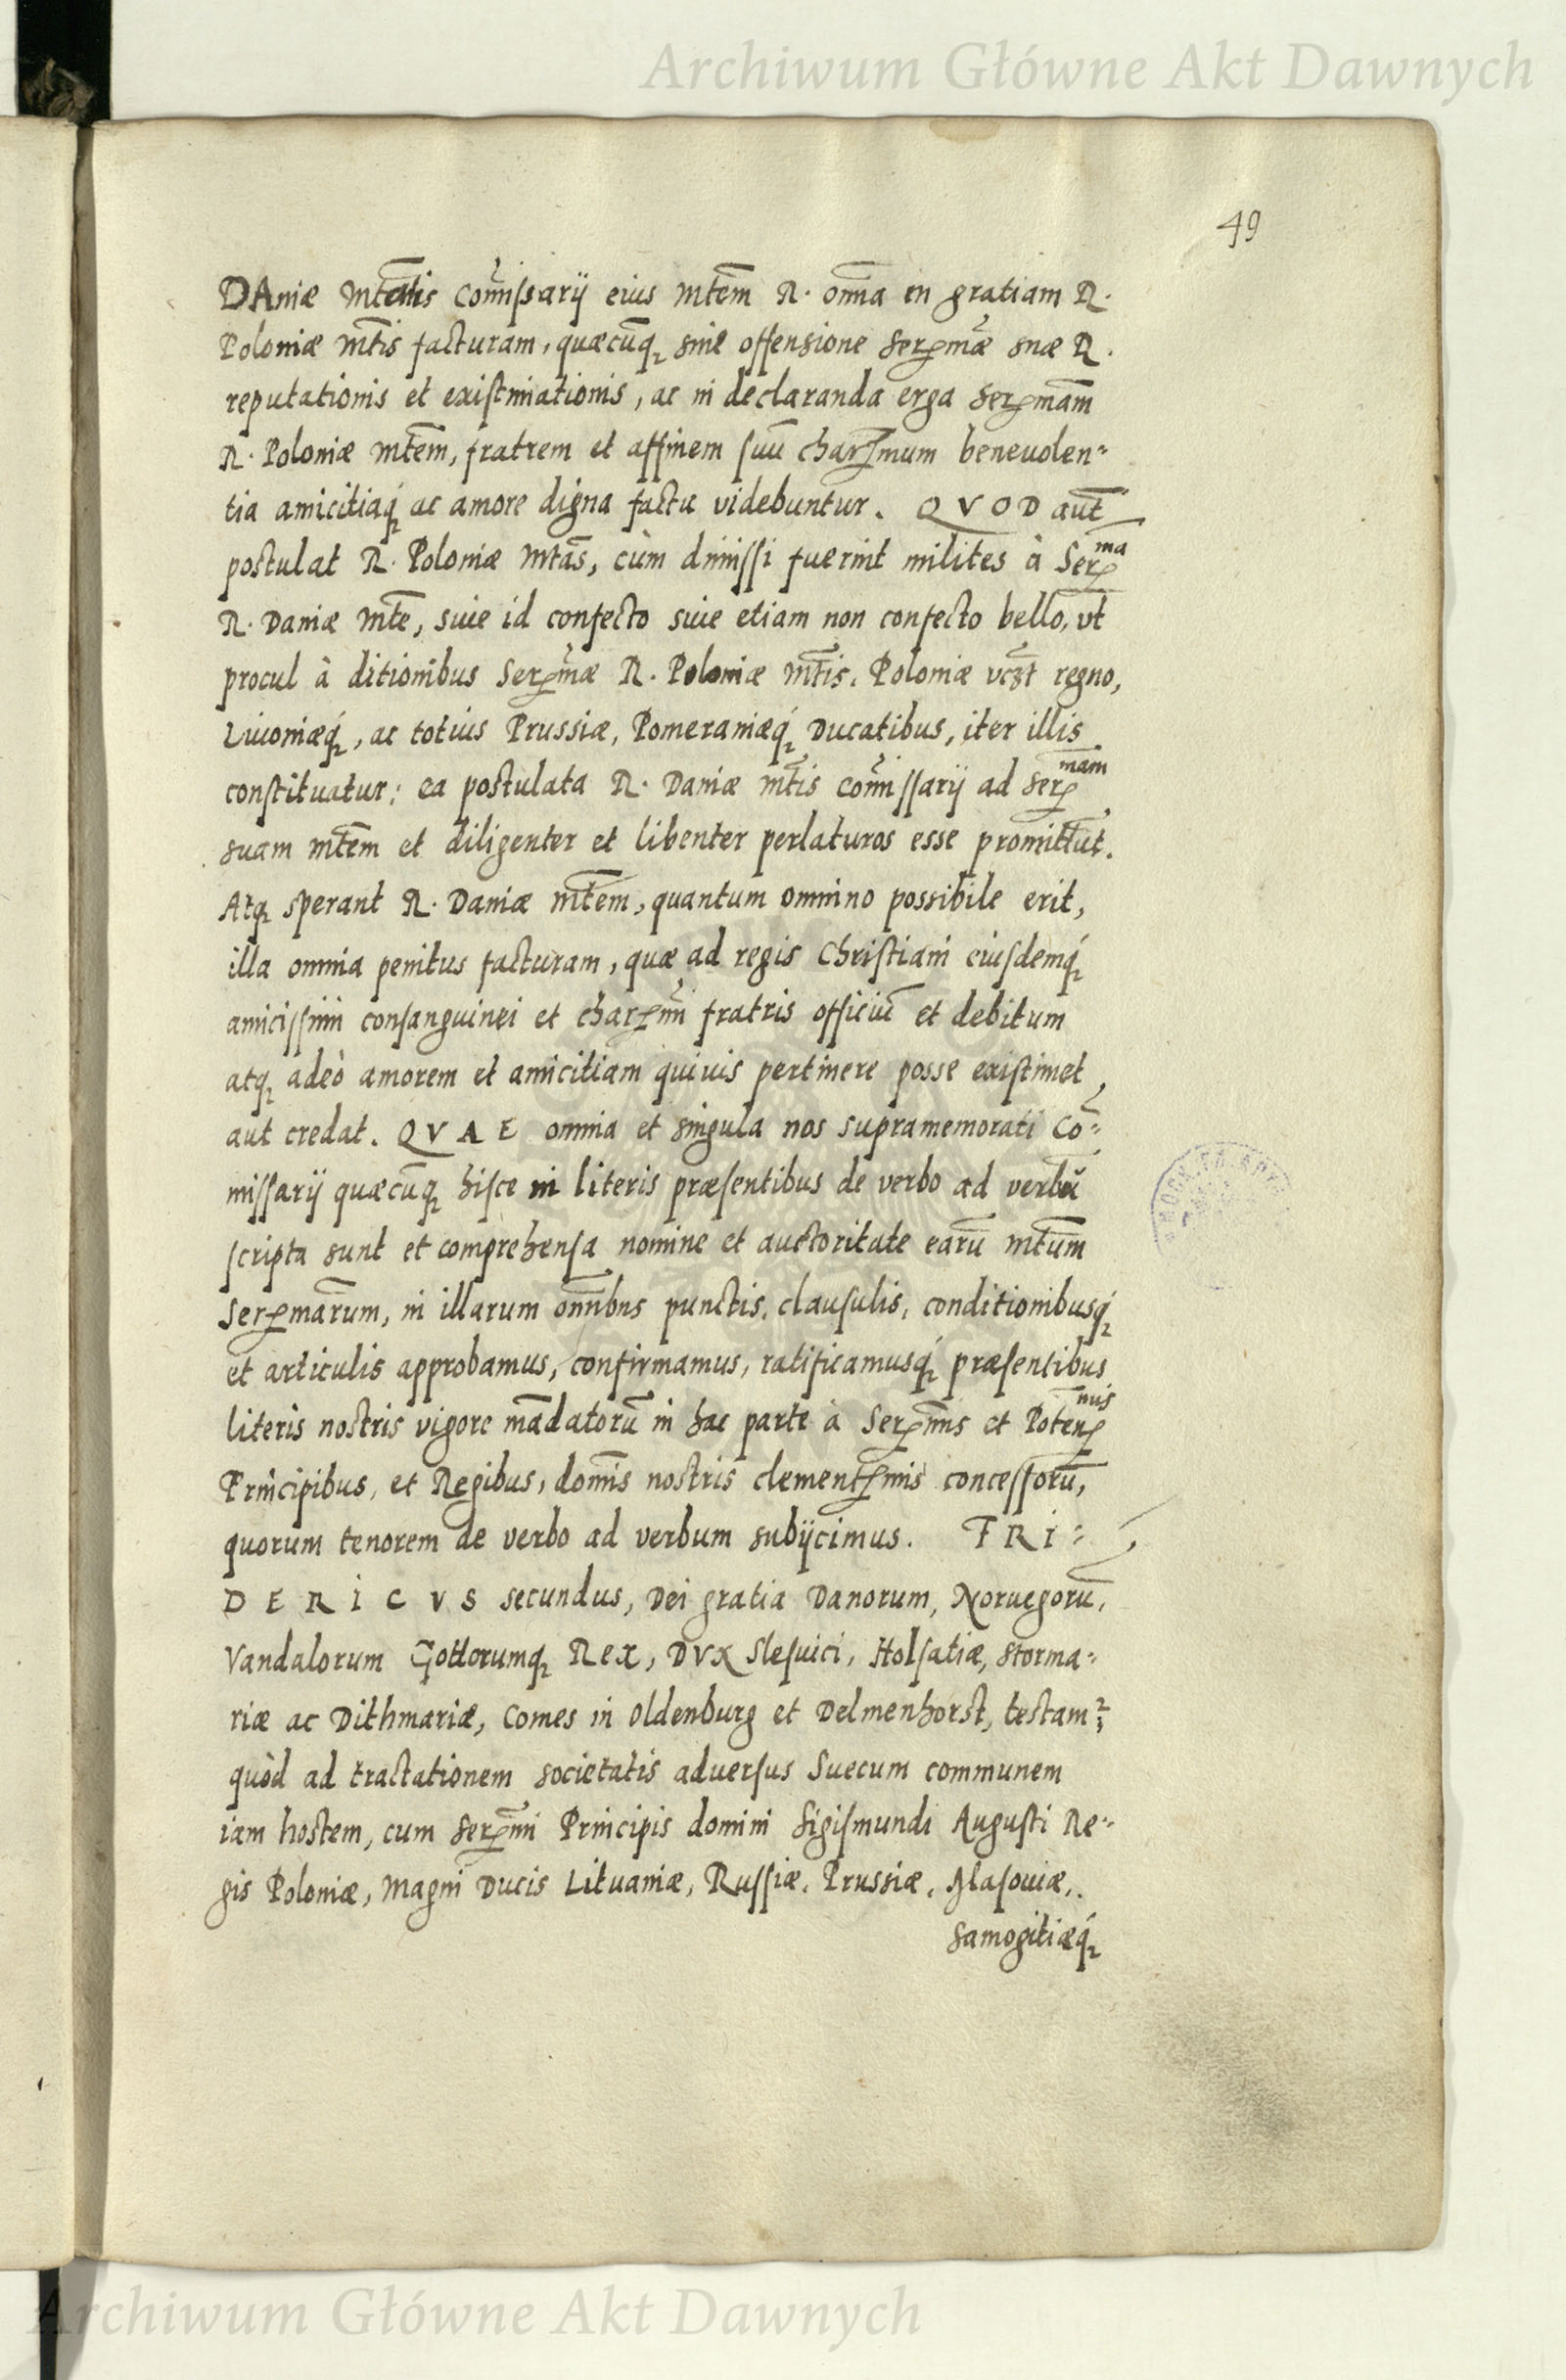 Archiwum Główne Akt Dawnych
49
DAniæ Mtatis Com̃issarij eius Mtem R. om̃ia in gratiam R.
Poloniæ Mtis facturam, quæcũq; sine offensione Serᵐæ suæ R.
reputationis et existimationis, ac in declaranda erga Serᵐam
R. Poloniæ Mtem, fratrem et affinem suũ charᵐum beneuolen=
tia amicitiaq́; ac amore digna factu videbuntur. QVOD aut̃
postulat R. Poloniæ Mtas, cùm dimissi fuerint milites à Serᵐᵃ
R. Daniæ Mte, siue id confecto siue etiam non confecto bello, vt
procul à ditionibus Serᵐæ R. Poloniæ Mtis, Poloniæ vczt regno,
Liuoniæq́;, ac totius Prussiæ, Pomeraniæq́; Ducatibus, iter illis
constituatur: ea postulata R. Daniæ Mtis Com̃issarij ad Serᵐᵃᵐ
suam Mtem et diligenter et libenter perlaturos esse promittũt.
Atq; sperant R. Daniæ Mtem, quantum omnino possibile erit,
illa omnia penitus facturam, quæ ad regis Christiani eiusdemq́;
amicissimi consanguinei et charᵐi fratris officiũ et debitum
atq; adeò amorem et amicitiam quiuis pertinere posse existimet,
aut credat. QVAE omnia et singula nos supramemorati Cõ=
missarij quæcũq; hisce in literis præsentibus de verbo ad verbũ
scripta sunt et comprehensa nomine et auctoritate earũ Mtum
Serᵐarum, in illarum om̃ibus punctis, clausulis, conditionibusq́;
et articulis approbamus, confirmamus, ratificamusq́; præsentibus
literis nostris vigore mãdatorũ in hac parte à Serᵐis et Potenᵐⁱˢ
Principibus, et Regibus, dom̃is nostris clementᵐis concessorũ,
quorum tenorem de verbo ad verbum subijcimus. FRI=
DERICVS secundus, Dei gratia Danorum, Noruegorũ,
Vandalorum Gottorumq; Rex, DVX Slesuici, Holsatiæ, Storma=
riæ ac Dithmariæ, Comes in Oldenburg et Delmenhorst, testam̃;
quòd ad tractationem societatis aduersus Suecum communem
iam hostem, cum Serᵐi Principis domini Sigismundi Augusti Re=
gis Poloniæ, Magni Ducis Lituaniæ, Russiæ, Prussiæ, Masouiæ,
Samogitiæq́;
Archiwum Główne Akt Dawnych